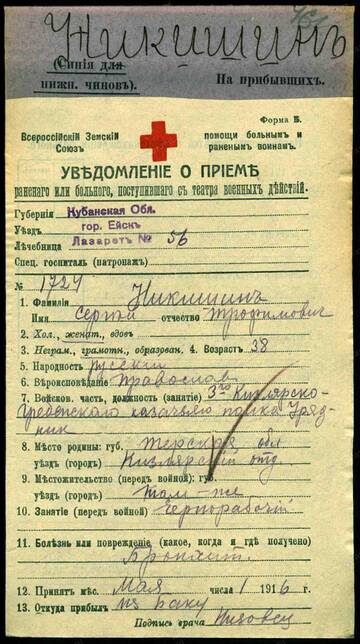 Никишинъ
(Синія для
нижн. чиновъ).
На прибывшихъ.
Форма Б.
Всероссійскій Земскій
Союзъ
помощи больнымъ и
раненымъ воинамъ.
УВѢДОМЛЕНІЕ О ПРІЕМѢ
раненаго или больного, поступившаго съ театра военныхъ дѣйствій.
Губернія Кубанская Обл.
Уѣздъ гор. Ейскъ
Лечебница Лазаретъ № 56
Спец. госпиталь (патронажъ)
№ 1724
1. Фамилія Никишинъ
Имя Сергѣй отчество Трофимовичъ
2. Хол., женат., вдов.
3. Неграм., грамотн., образован. 4. Возрастъ 38
5. Народность русскій
6. Вѣроисповѣданіе Православ
7. Войсков. часть, должность (занятіе) 3го Кизлярско-
Гребенского казачьяго полка Уряд-
никъ
8. Мѣсто родины: губ. Терская обл
уѣздъ (городъ) Кизлярскій отд
9. Мѣстожительство (передъ войной): губ.
уѣздъ (городъ) Там-же
10. Занятіе (передъ войной) Чернорабочій
11. Болѣзнь или поврежденіе (какое, когда и гдѣ получено)
Бронхит.
12. Принятъ мѣс. Мая числа 1 1916 г.
13. Откуда прибылъ из Баку
Подпись врача